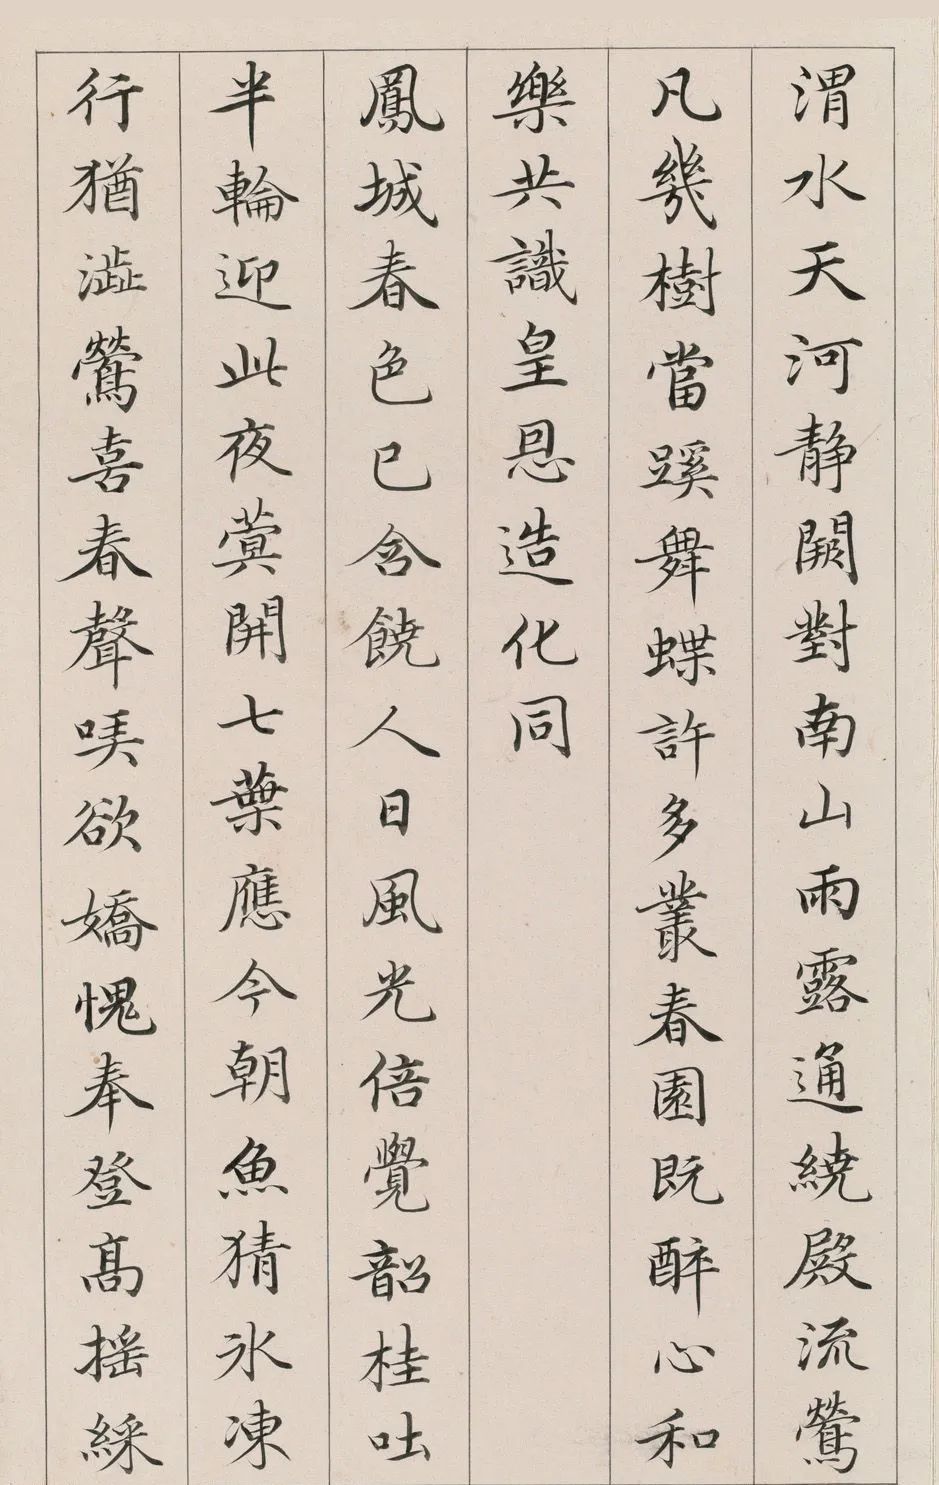 渭水天河静闕對南山雨露通繞殿流鶯
凡幾樹當蹊舞蝶許多叢春園既醉心和
樂共識皇恩造化同
鳳城春色已含饒人日風光倍覺韶桂吐
半輪迎此夜蓂開七葉應今朝魚猜氷凍
行猶澁鶯喜春聲㗛欲嬌愧奉登髙揺綵